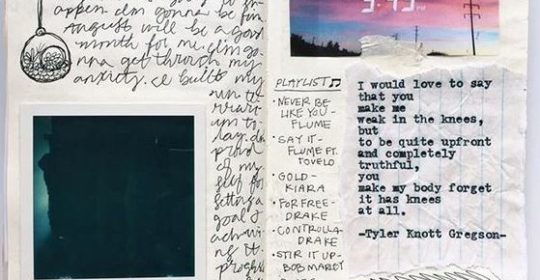 happen. I'm gonna be fine
August will be a good
month for me. I'm gon
na get through my
anxiety. I built my
proud
of my
self for
setting a
goal &
achi-
ving
it.
progress
3:45 PM
PLAYLIST♫
• NEVER BE
LIKE YOU-
FLUME
• SAY IT-
FLUME FT.
TOVELO
• GOLD-
KIARA
• FOR FREE-
DRAKE
• CONTROLLA
DRAKE
• STIR IT UP-
BOB MARLEY
I would love to say
that you
make me
weak in the knees,
but
to be quite upfront
and completely
truthful,
you
make my body forget
it has knees
at all.
-Tyler Knott Gregson-